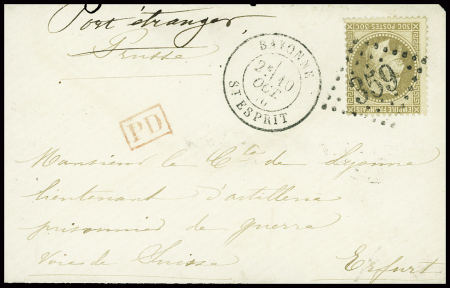 Port étranger
Prusse
BAYONNE
2E/
10
OCT.
ST ESPRIT
359
EMPIRE FRANC
PD
Monsieur le Cte de
lieutenant d'artillerie
prisonnier de guerre
Voie de Suisse Erfurt